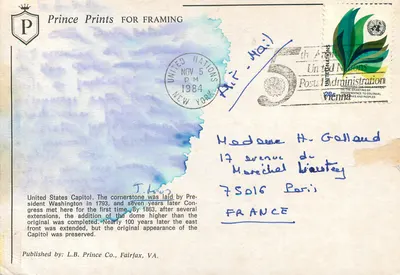 P
Prince Prints FOR FRAMING
UNITED NATIONS
NOV 5
PM
1984
NEW YORK
Air-Mail
5th
United N
Postal Administration
Vienna
Madame H. Galland
17 avenue du
Maréchal
75016 Paris
FRANCE
United States Capitol. The cornerstone was laid by Pre-
sident Washington in 1793, and seven years later Con-
gress met here for the first time. By 1863, after several
extensions, the addition of the dome higher than the
original was completed. Nearly 100 years later the east
front was extended, but the original appearance of the
Capitol was preserved.
Published by: L.B. Prince Co., Fairfax, VA.